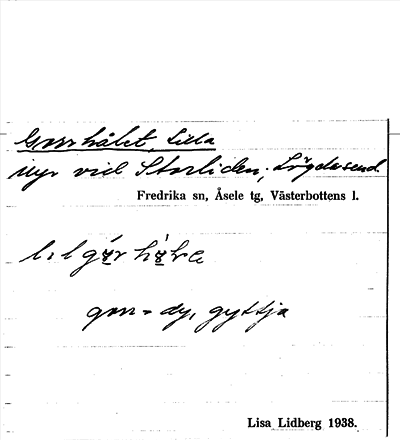 Gorrhålet, Lilla
myr vid Storliden, Lögdasund.
Fredrika sn, Åsele tg, Västerbottens l.
gorr = dy, gyttja
Lisa Lidberg 1938.